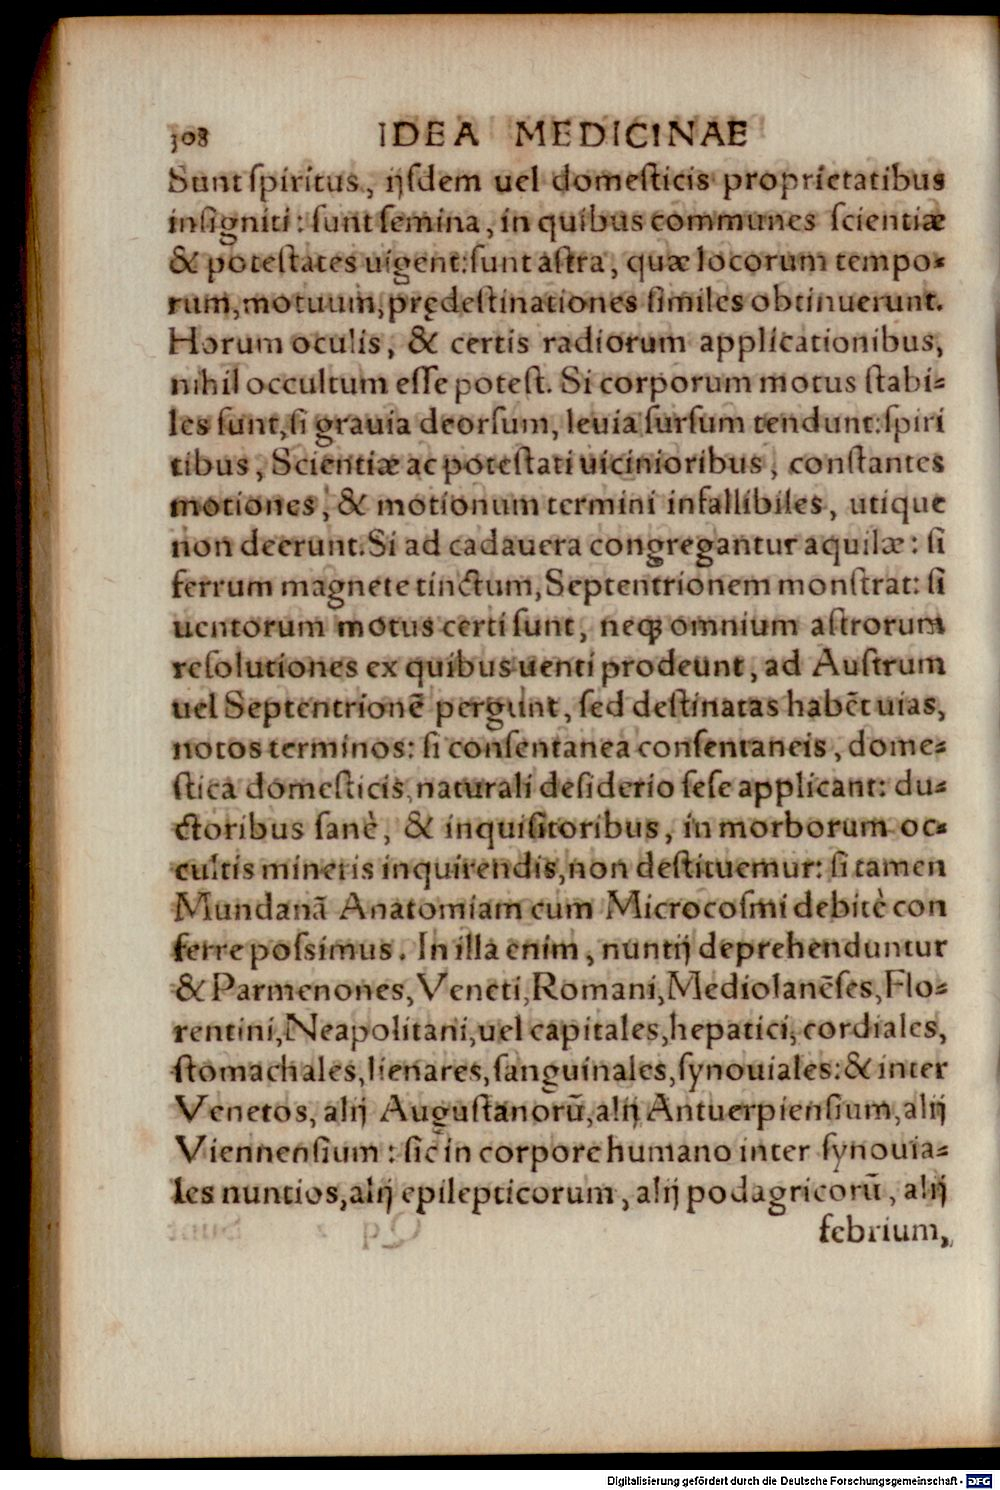 308 IDEA MEDICINAE
Sunt spiritus, ijsdem uel domesticis proprietatibus
insigniti: sunt semina, in quibus communes scientiæ
& potestates uigent: sunt astra, quæ locorum tempo-
rum, motuum, prędestinationes similes obtinuerunt.
Horum oculis, & certis radiorum applicationibus,
nihil occultum esse potest. Si corporum motus stabi-
les sunt, si grauia deorsum, leuia sursum tendunt: spiri
tibus, Scientiæ ac potestati uicinioribus, constantes
motiones, & motionum termini infallibiles, utique
non deerunt. Si ad cadauera congregantur aquilæ: si
ferrum magnete tinctum, Septentrionem monstrat: si
uentorum motus certi sunt, neqꝫ omnium astrorum
resolutiones ex quibus uenti prodeunt, ad Austrum
uel Septentrionē pergunt, sed destinatas habēt uias,
notos terminos: si consentanea consentaneis, dome-
stica domesticis, naturali desiderio sese applicant: du-
ctoribus sanè, & inquisitoribus, in morborum oc-
cultis mineris inquirendis, non destituemur: si tamen
Mundanā Anatomiam cum Microcosmi debitè con
ferre possimus. In illa enim, nuntij deprehenduntur
& Parmenones, Veneti, Romani, Mediolanēses, Flo-
rentini, Neapolitani, uel capitales, hepatici, cordiales,
stomachales, lienares, sanguinales, synouiales: & inter
Venetos, alij Augustanorū, alij Antuerpiensium, alij
Viennensium: sic in corpore humano inter synouia-
les nuntios, alij epilepticorum, alij podagricorū, alij
febrium,
Digitalisierung gefördert durch die Deutsche Forschungsgemeinschaft - DFG